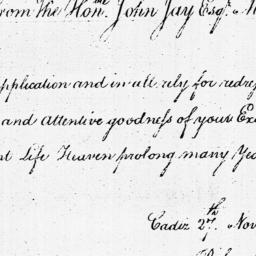 rom the Hon. John Jay Esqr.
pplication and in all rely for redre
and attentive goodness of your Ex
nt Life Heaven prolong many Yea
Cadiz 27th Nov